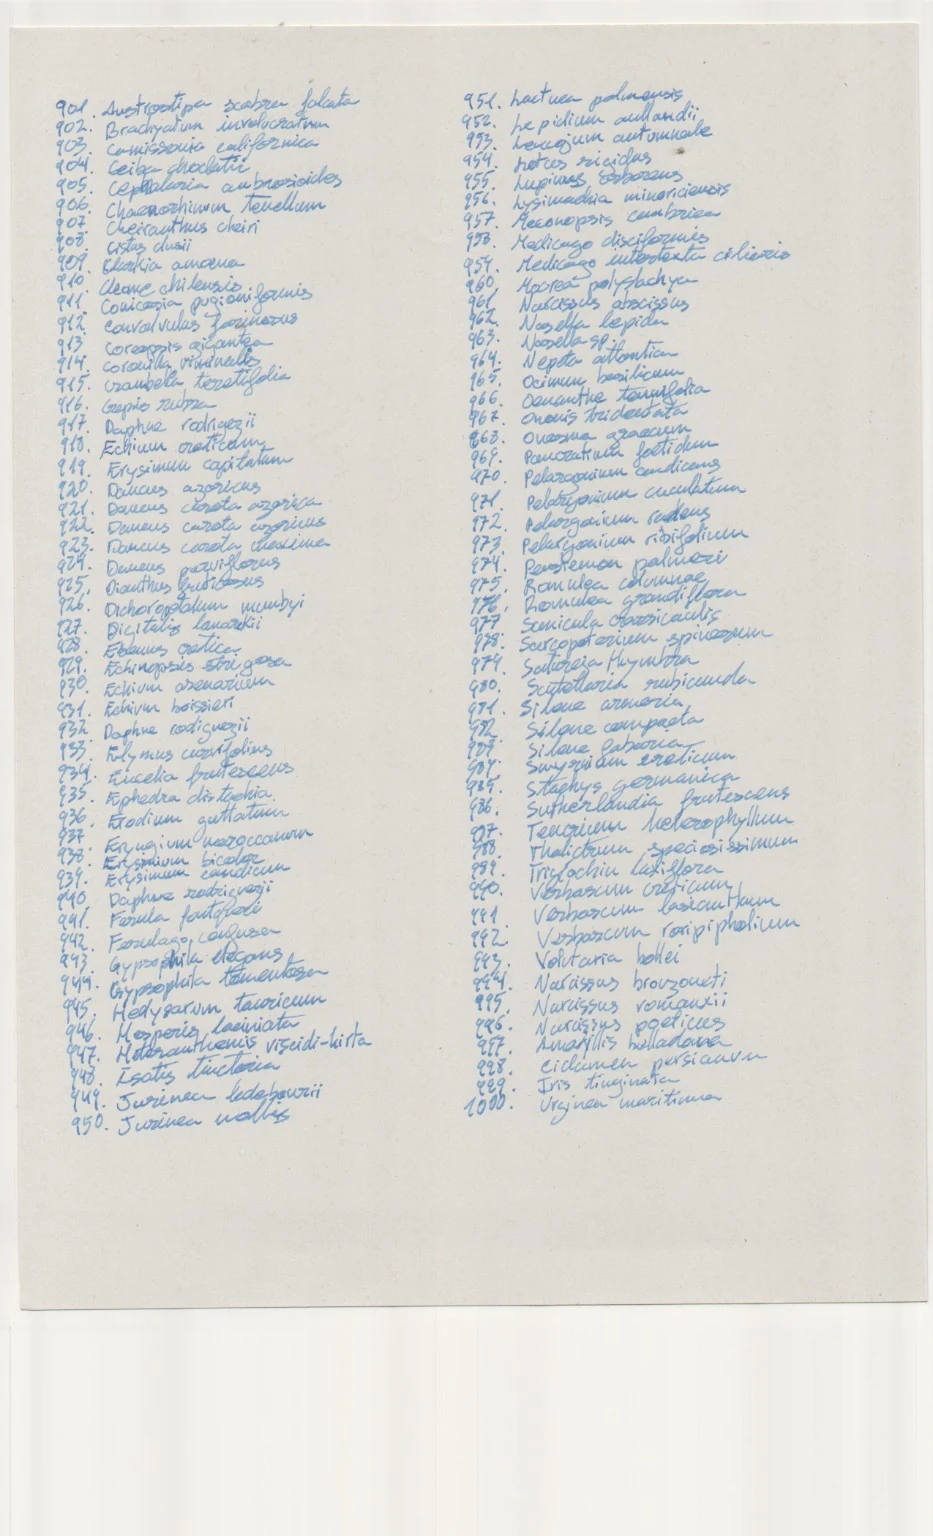 901. Austrostipa scabra falcata
902. Brachyatum involucratum
903. Camissonia californica
904. Ceiba chodatii
905. Cephalaria ambrosioides
906. Chaenorhinum tenellum
907. Cheiranthus cheiri
908. Cistus clusii
909. Clarkia amoena
910. Cleome chilensis
911. Conicosia pugioniformis
912. Convolvulus farinosus
913. Coreopsis gigantea
914. Coronilla viminalis
915. Crambella teretifolia
916. Crepis rubra
917. Daphne rodrigezii
918. Echium creticum
919. Erysimum capitatum
920. Daucus azoricus
921. Daucus carota azorica
922. Daucus carota azoricus
923. Daucus carota maxima
924. Daucus parviflorus
925. Dianthus fruticosus
926. Dichoropetalum munbyi
927. Digitalis lamarkii
928. Ebenus cretica
929. Echinopsis strigosa
930. Echium arenarium
931. Echium boissieri
932. Daphne rodiguezii
933. Elymus curvifolius
934. Encelia frutescens
935. Ephedra distachia
936. Erodium guttatum
937. Eryngium maroccanum
938. Erysimum bicolor
939. Erysimum candicum
940 Daphne rodriguezii
941. Ferula
942. Ferulago confusa
943. Gypsophila elegans
944. Gypsophila tomentosa
945. Hedysarum tauricum
946. Hesperis laciniata
947. Heteranthemis viscidi-hirta
948. Isatis tinctoria
949. Jurinea ledebourii
950. Jurinea mollis
951. Lactuca palmensis
952. Lepidium
953. Leucojum autumnale
954. Lotus
955. Lupinus
956. Lysimachia minoricensis
957. Meconopsis cambrica
958. Medicago disciformis
959. Medicago intertexta ciliaris
960. Moorea polystachya
961. Narcissus
962. Nasella lepida
963. Nasella sp.
964. Nepeta atlantica
965. Ocimum basilicum
966. Oenanthe tenuifolia
967. Ononis tridentata
968. Onosma graecum
969. Pancratium foetidum
970. Pelargonium candicans
971. Pelargonium cuculatum
972. Pelargonium radens
973. Pelargonium ribifolium
974. Penstemon palmeri
975. Romulea columnae
976. Romulea grandiflora
977 Sanicula crassicaulis
978. Sarcopoterium spinosum
979. Satureja thymbra
980. Scutellaria rubicunda
981. Silene armeria
982 Silene compacta
983. Silene fabaria
984. Smyrnium creticum
985. Stachys germanica
986. Sutherlandia frutescens
987. Teucrium heterophyllum
988 Thalictrum speciosissimum
989. Triglochin laxiflora
990. Verbascum creticum
991 Verbascum lasianthum
992. Verbascum roripifolium
993. Volutaria bollei
994. Narcissus brouzoneti
995. Narcissus romauxii
996. Narcissus poeticus
997. Amaryllis belladona
998. Ciclamen persianum
999. Iris tinginata
1000. Urginea maritima